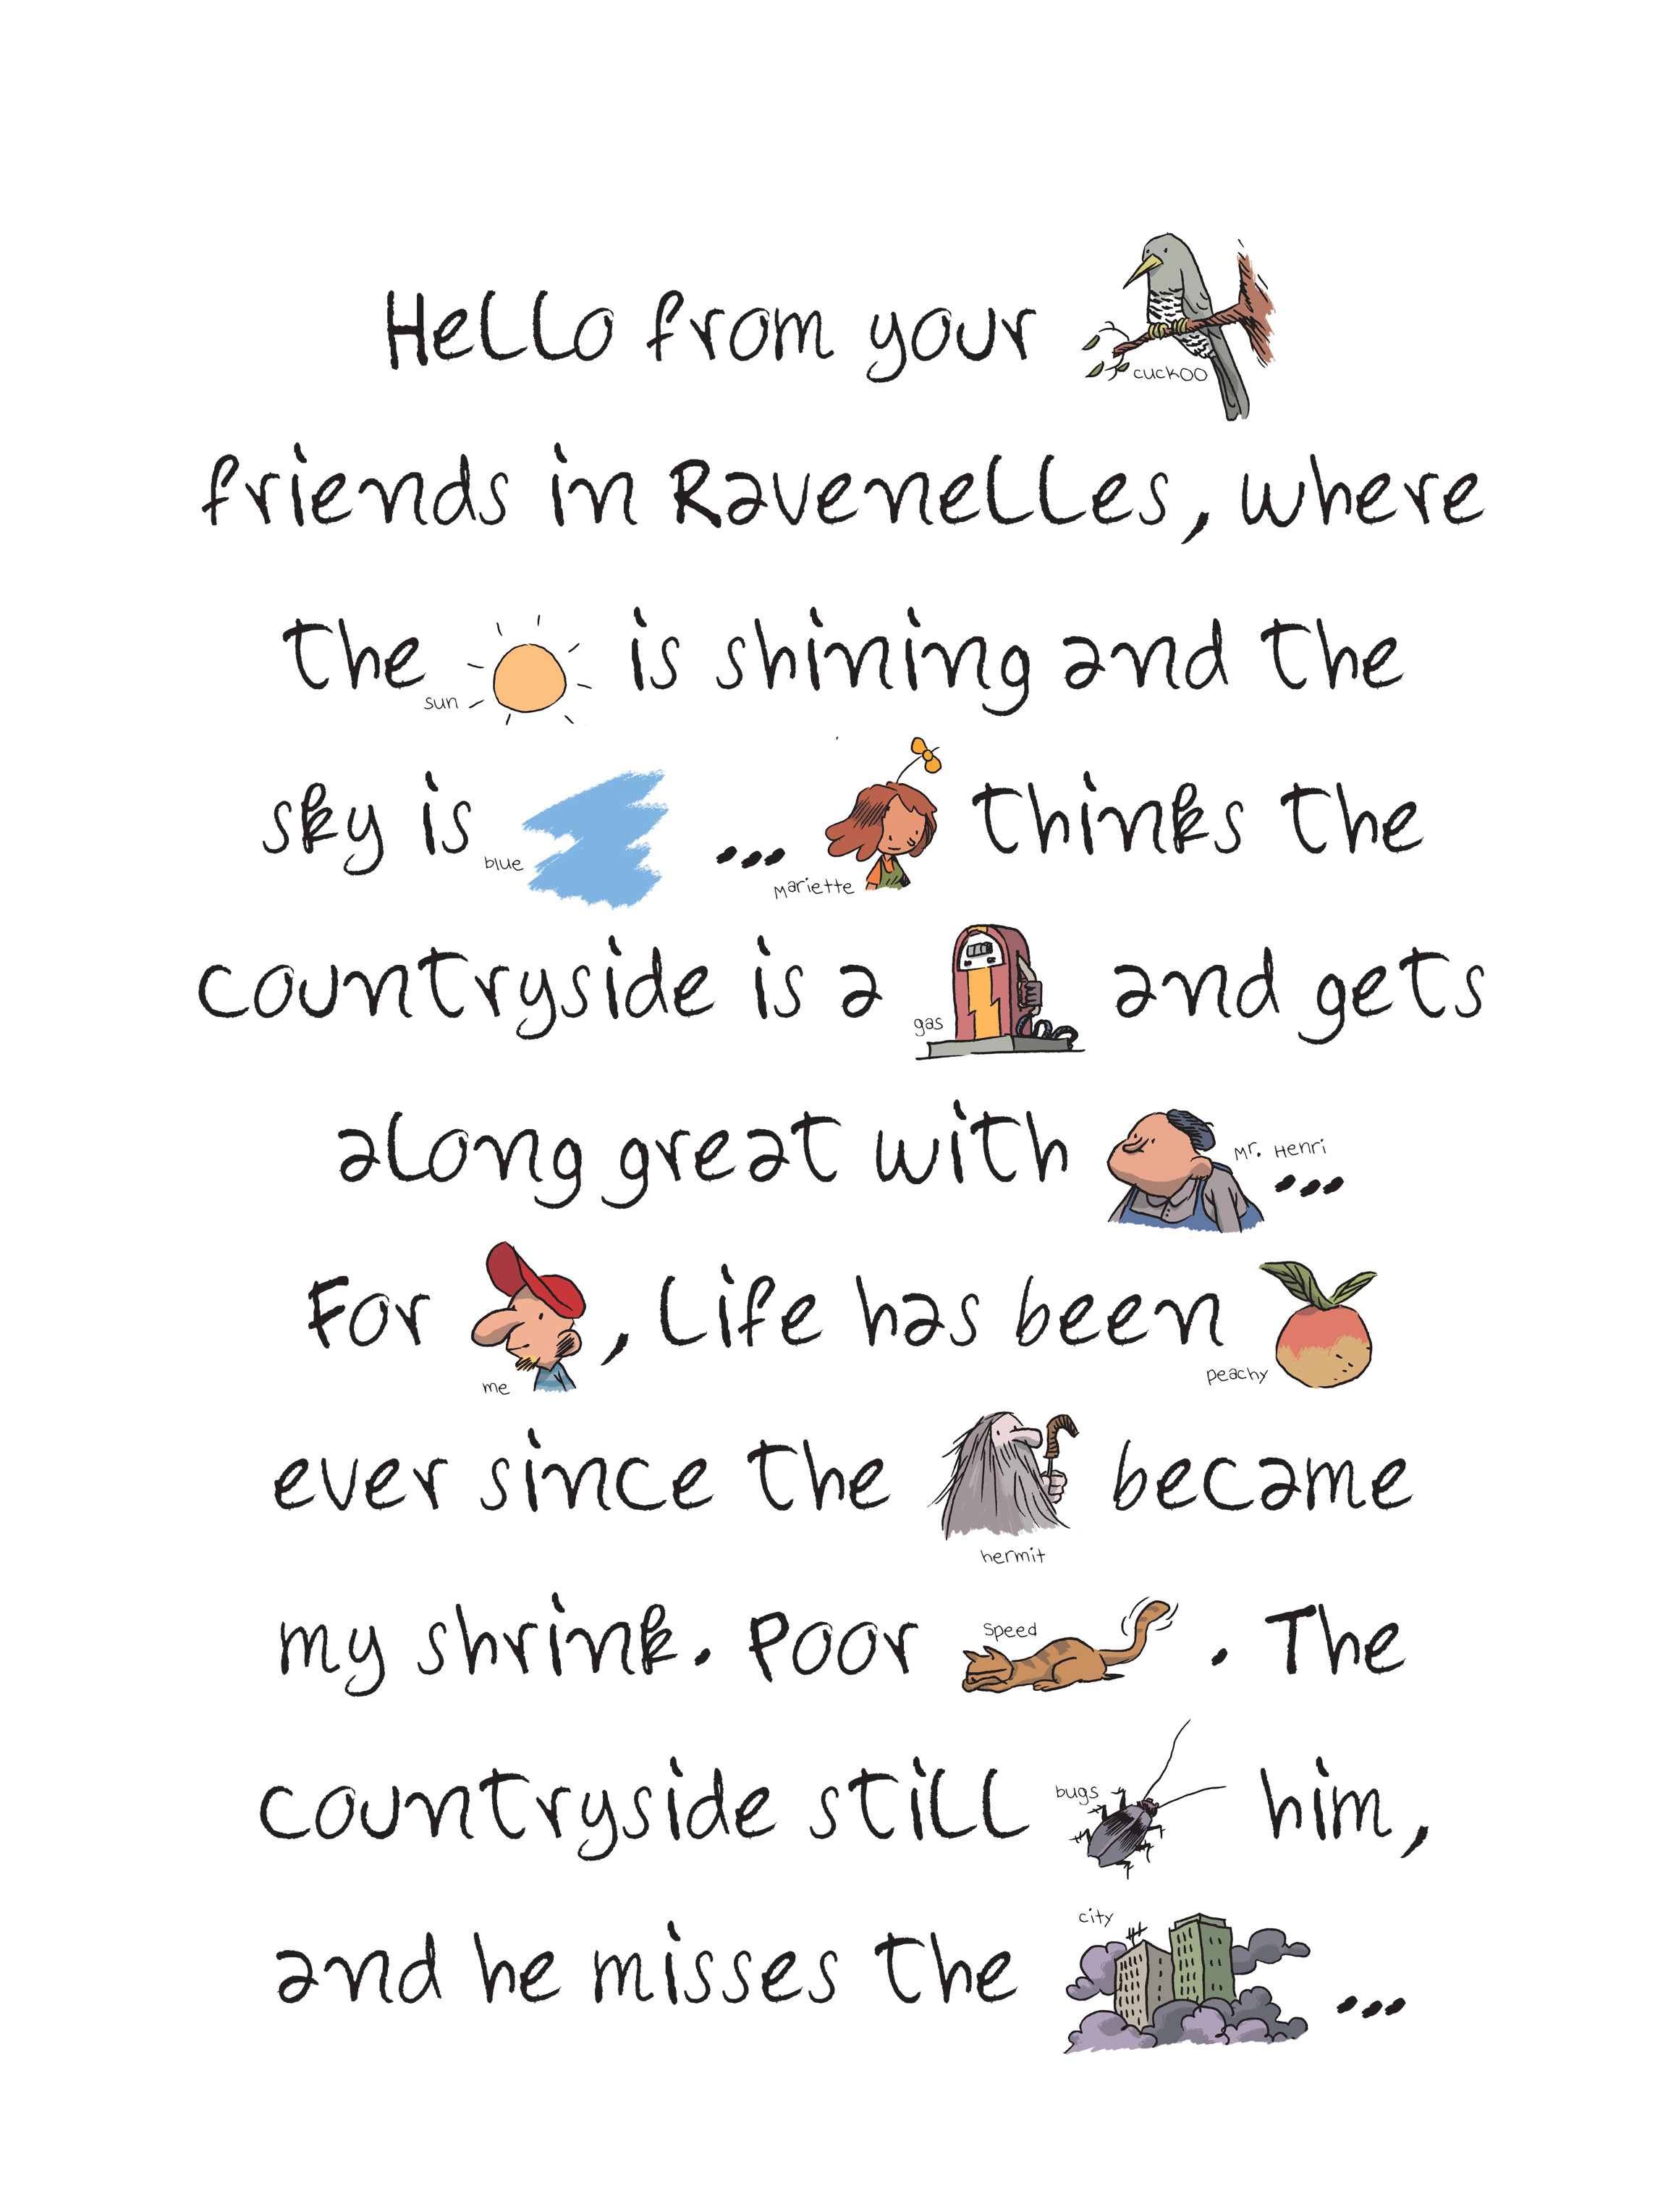 Hello from your cuckoo
friends in Ravenelles, where
the sun is shining and the
sky is blue ... Mariette thinks the
countryside is a gas and gets
along great with Mr. Henri ...
For me, life has been peachy
ever since the hermit became
my shrink. Poor Speed. The
countryside still bugs him,
and he misses the city ...